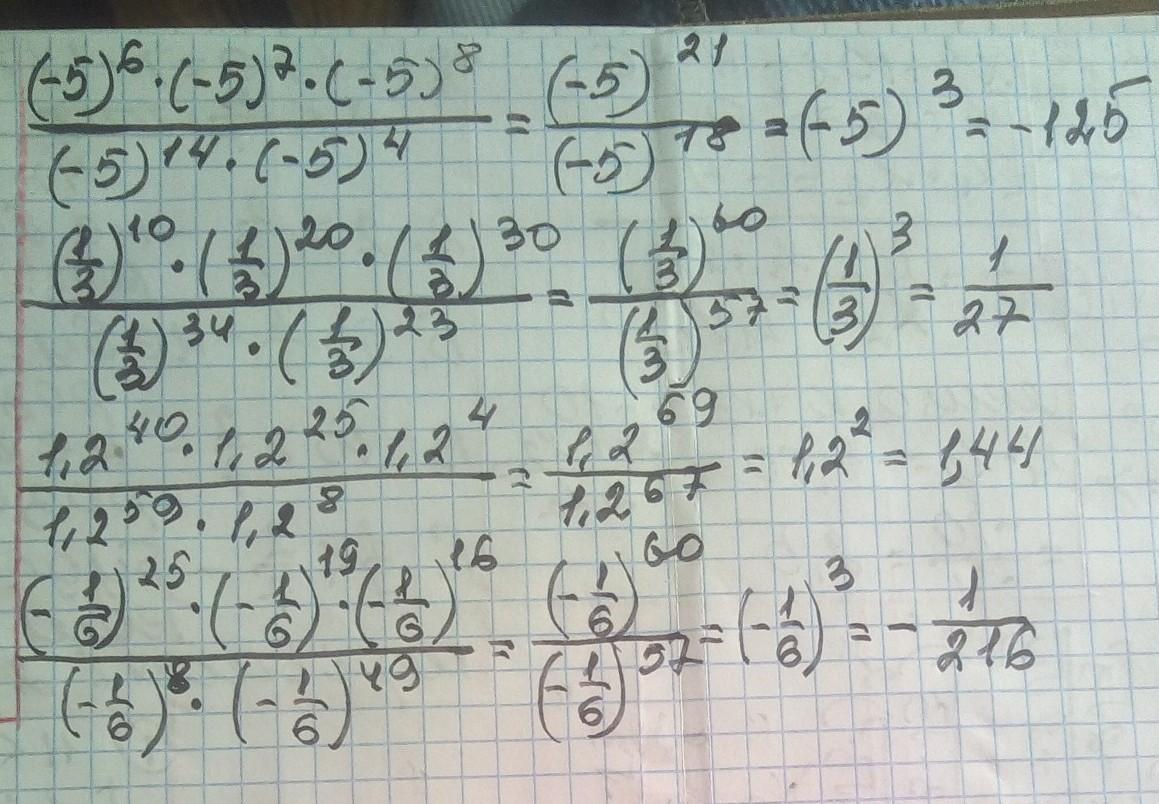 (-5)^6 · (-5)^7 · (-5)^8 / (-5)^14 · (-5)^4 = (-5)^21 / (-5)^18 = (-5)^3 = -125
(1/3)^10 · (1/3)^20 · (1/3)^30 / (1/3)^34 · (1/3)^23 = (1/3)^60 / (1/3)^57 = (1/3)^3 = 1/27
1,2^40 · 1,2^25 · 1,2^4 / 1,2^59 · 1,2^8 = 1,2^69 / 1,2^67 = 1,2^2 = 1,44
(-1/6)^25 · (-1/6)^19 · (-1/6)^16 / (-1/6)^8 · (-1/6)^49 = (-1/6)^60 / (-1/6)^57 = (-1/6)^3 = -1/216